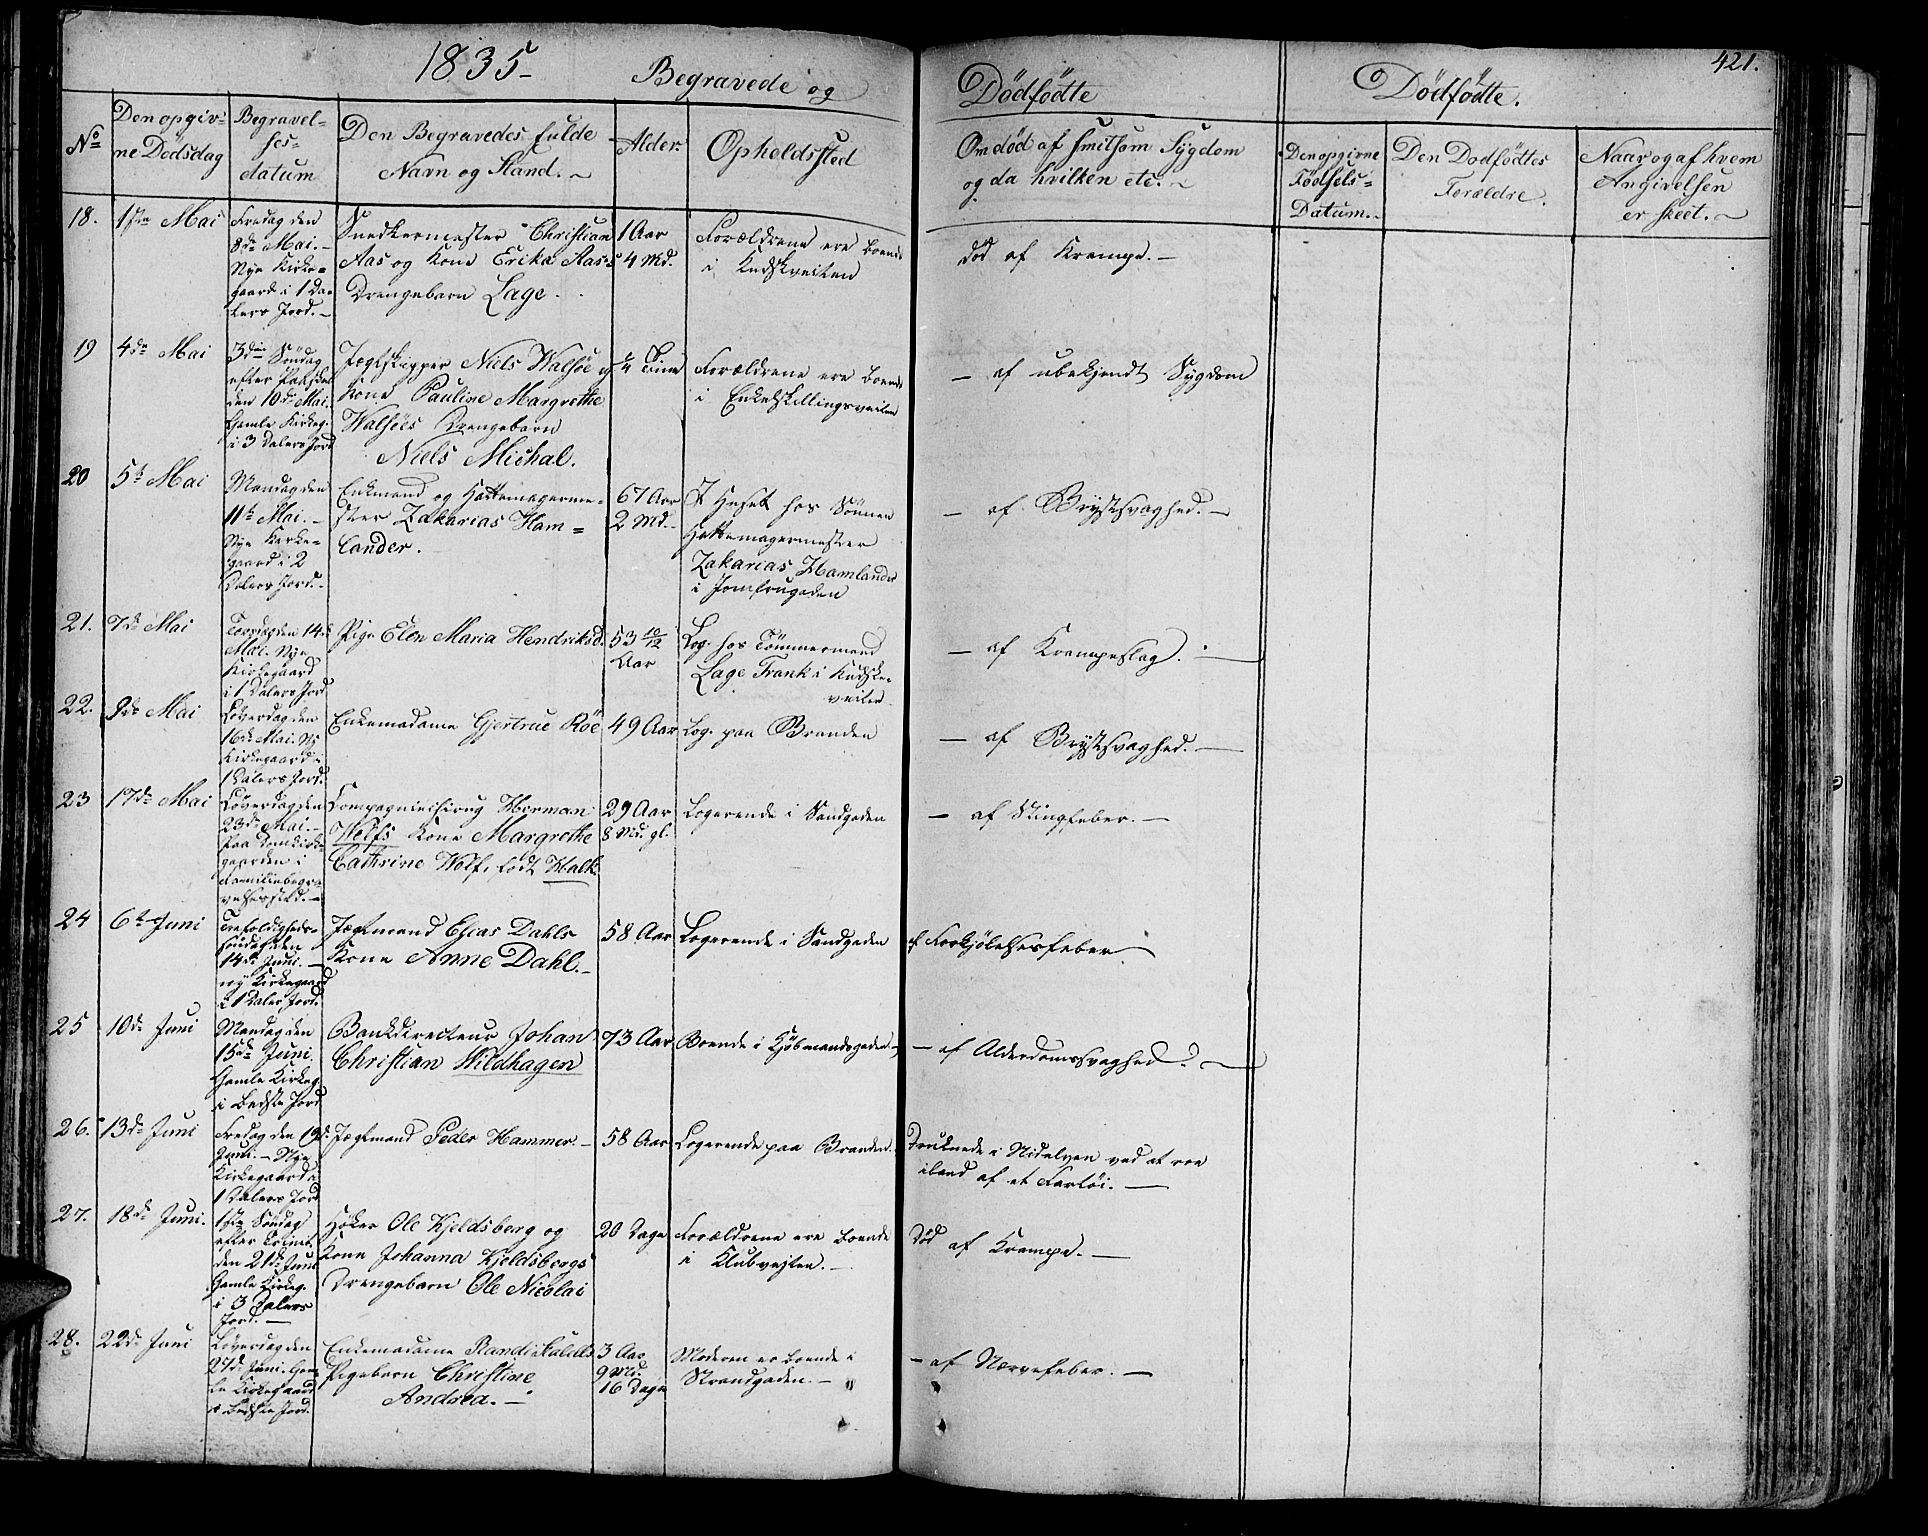 1835-
Begravede og
Dödfödte
Dödfödte.
421.
No
Den opgiv-
ne Dödsdag
Begravel-
ses-
datum
Den Begravedes fulde
Navn og Stand. -
Alder.
Opholdssted
Om död af smitsom Sygdom
og da hvilken etc. -
Den opgivne
Födsels-
Datum. -
Den Dödfödtes
Forældre.
Naar og af hvem
Angivelsen
er skeet. -
18.
1ste Mai
Fredag den
8de Mai. -
Nye Kirke-
gaard i 1 Da-
lers Jord. -
Snedkermester Christian
Aas og Kone Erika Aas's
Drengebarn Lage.
1 Aar
4 Md.
Forældrene ere boende
i
död af Krampe. -
19
4de Mai
3die Söndag
efter Paaske
den 10de Mai.
Gamle Kirkeg.
i 3 Dalers Jord
Jægtskipper Niels Walsöe og
Kone Pauline Margrethe
Walsöes Drengebarn
Niels Michal.
Forældrene ere boende
i Enkeltskillingsveiten
- af ubekjendt Sygdom
20
5t Mai
Mandag den
11te Mai. -
Nye Kirke-
gaard i 2
Dalers Jord. -
Enkemand og Hattemagerme-
ster Zakarias Ham=
lander.
67 Aar
2 Md.
I Huset hos Sönnen
Hattemagermester
Zakarias Hamlander
i Jomfrugaden
- af Brystsvaghed. -
21.
7de Mai
Torsdag den 14de
Mai. Nye
Kirkegaard
i 1 Dalers Jord
Pige Elen Maria Hendriksd.
53 10/12
Aar
Log. hos Tömmermand
Lage Frank i
veiten
- af Krampeslag. -
22.
9de Mai
Löverdag den
16de Mai. Ny
Kirkegaard i
1 Dalers Jord.
Enkemadame Gjertrue Röe
49 Aar
Log. paa Branden
- af Brystsvaghed. -
23
17de Mai
Löverdag den
23de Mai. -
Paa Domkirke-
gaarden i
Familiebegra-
velsessted. -
Compagniechirurg Herman
Wolfs Kone Margrethe
Cathrine Wolf, födt Halk.
29 Aar
8 Md. gl.
Logerende i Sandgaden
- af
24
6te Juni
Trefoldigheds-
söndag den
14de Juni. -
ny Kirkegaard
i 1 Daler Jord.
Jægtmand Elias Dahls
Kone Anne Dahl. -
58 Aar
Logerende i Sandgaden
af Forkjölelsesfeber.
25
10de Juni
Mandag den
15de Juni.
Gamle Kirkeg.
i bedste Jord
Bankdirecteur Johan
Christian Wildhagen
73 Aar
Boende i Kjöbmandsgaden. -
- af Alderdomssvaghed. -
26.
13de Juni
Fredag den 19de
Juni. - Nye
Kirkegaard i
1 Dalers Jord
Jægtmand Peder Hammer. -
58 Aar
Logerende paa Branden.
Druknede i Nidelven ved at roe
iland af et Fartöi. -
27.
18de Juni.
1ste Söndag
efter Trinit.
den 21de Juni
Gamle Kirkeg.
i 3 Dalers
Jord. -
Höker Ole Kjeldsberg og
Kone Johanna Kjeldsbergs
Drengebarn Ole Nicolai
20 Dage
Forældrene ere boende
i Klubveiten. -
Död af Krampe. -
28.
22de Juni
Löverdag den
27de Juni. Gam-
le Kirkegaard
i bedste Jord.
Enkemadame Randi
Pigebarn Christine
Andrea. -
3 Aar
9 Md.
16 Dage
Moderen er boende i
Strandgaden. -
- af Nervefeber. -